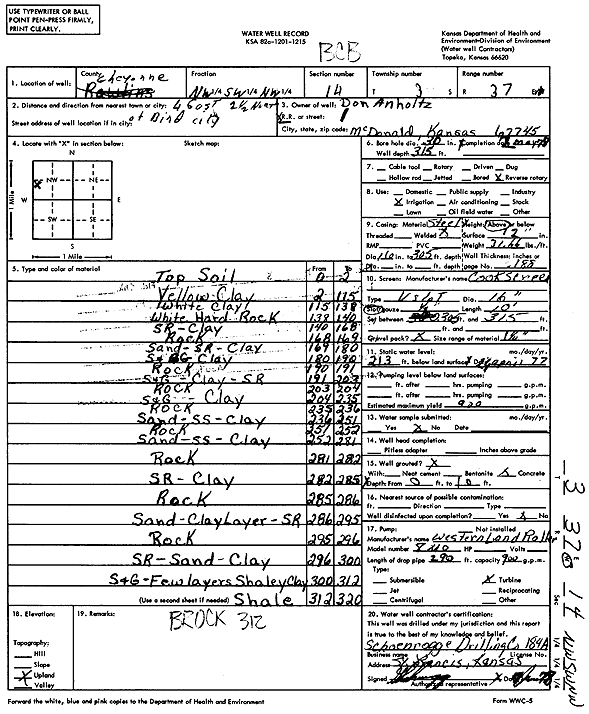 USE TYPEWRITER OR BALL
POINT PEN-PRESS FIRMLY,
PRINT CLEARLY.
WATER WELL RECORD
KSA 82a-1201-1215
Kansas Department of Health and
Environment-Division of Environment
(Water well Contractors)
Topeka, Kansas 66620
BCB
1. Location of well:
County Cheyenne
Rawlins
Fraction
NW 1/4 SW 1/4 NW 1/4
Section number
14
Township number
T 3 S
Range number
R 37
2. Distance and direction from nearest town or city: 4 East 2 1/2 Nort
Street address of well location if in city: of Bird city
3. Owner of well: Don Anholtz
R.R. or street:
City, state, zip code: McDonald, Kansas 67745
4. Locate with "X" in section below:
Sketch map:
N
NW NE
W E
SW SE
S
1 Mile
1 Mile
6. Bore hole dia. 30 in. Completion date
Well depth 315 ft.
7. Cable tool Rotary Driven Dug
Hollow rod Jetted Bored X Reverse rotary
8. Use: Domestic Public supply Industry
X Irrigation Air conditioning Stock
Lawn Oil field water Other
9. Casing: Material Steel Height: Above or below
Threaded Welded X Surface 12 in.
RMP PVC Weight 31.66 lbs./ft.
Dia. 16 in. to 305 ft. depth Wall Thickness: inches or
Dia. in. to ft. depth gage No. .188
5. Type and color of material
From To
Top Soil 0 2
Yellow Clay 2 115
White Clay 115 138
White Hard Rock 138 140
SR-Clay 140 168
Rock 168 169
Sand-SR-Clay 169 180
S&G-Clay 180 190
Rock 190 191
S&G-Clay-SR 191 203
Rock 203 204
S&G-Clay 204 235
Rock 235 236
Sand-SS-Clay 236 251
Rock 251 252
Sand-SS-Clay 252 281
Rock 281 282
SR-Clay 282 285
Rock 285 286
Sand-Clay Layer-SR 286 295
Rock 295 296
SR-Sand-Clay 296 300
S&G-Few layers Shaley Clay 300 312
(Use a second sheet if needed) Shale 312 320
10. Screen: Manufacturer's name Cook Screen
Type Dia. 16"
Slot/gauze Length 10'
Set between 305 ft. and 315 ft.
ft. and ft.
Gravel pack? X Size range of material
11. Static water level: mo./day/yr.
213 ft. below land surface
12. Pumping level below land surfaces:
ft. after hrs. pumping g.p.m.
ft. after hrs. pumping g.p.m.
Estimated maximum yield 900 g.p.m.
13. Water sample submitted: mo./day/yr.
Yes X No Date
14. Well head completion:
Pitless adapter Inches above grade
15. Well grouted? X
With: Neat cement Bentonite X Concrete
Depth From 0 ft. to 10 ft.
16. Nearest source of possible contamination:
ft. Direction Type
Well disinfected upon completion? Yes X No
17. Pump: Not installed
Manufacturer's name Western Land Roller
Model number HP Volts
Length of drop pipe 290 ft. capacity 900 g.p.m.
Type:
Submersible X Turbine
Jet Reciprocating
Centrifugal Other
18. Elevation:
Topography:
Hill
Slope
X Upland
Valley
19. Remarks:
BROCK 312
20. Water well contractor's certification:
This well was drilled under my jurisdiction and this report
is true to the best of my knowledge and belief.
Schoenrogge Drilling Co 184A
Business name License No.
Address St. Francis, Kansas
Signed
Authorized representative
Forward the white, blue and pink copies to the Department of Health and Environment
Form WWC-5
T 3
R 37 W
Sec 14
1/4 1/4 1/4 NW SW NW